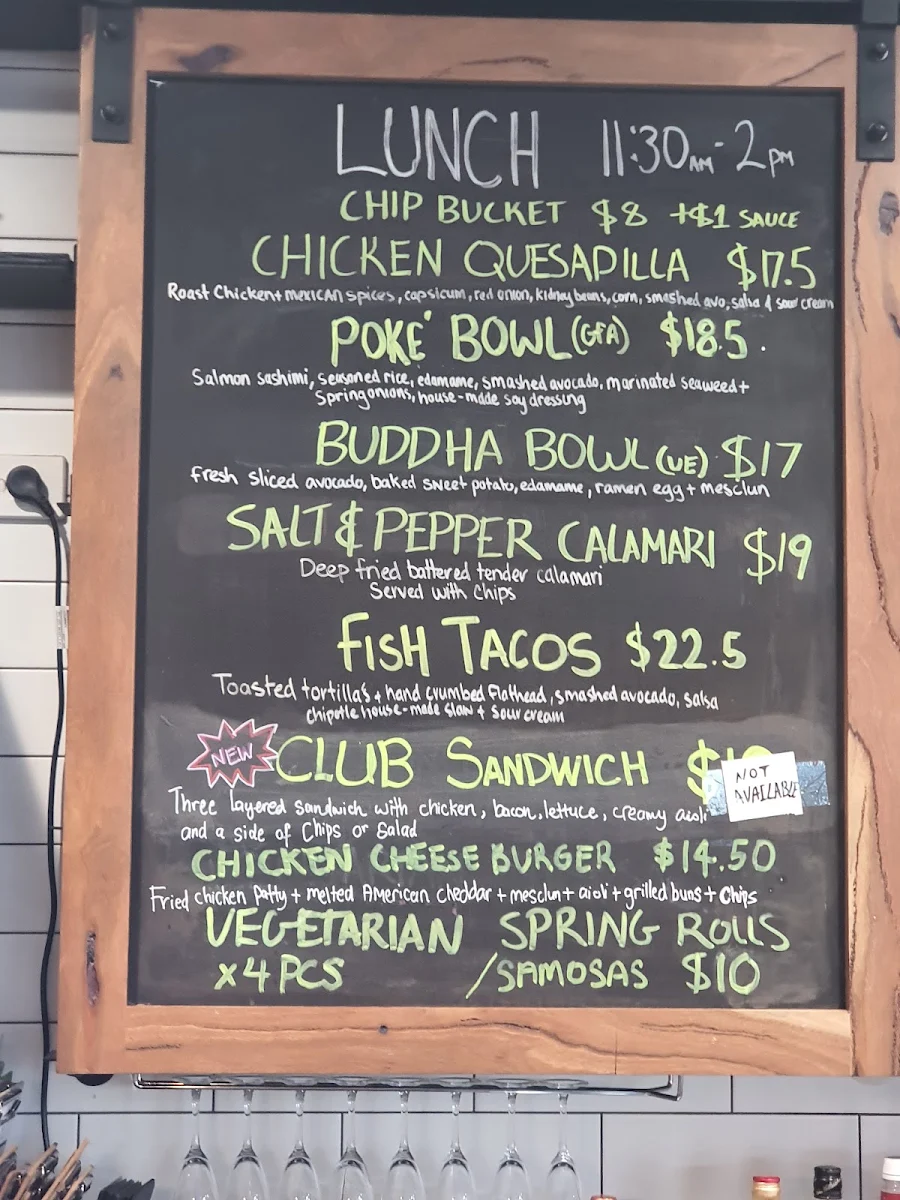 LUNCH 11:30AM-2PM
CHIP BUCKET $8 +$1 SAUCE
CHICKEN QUESADILLA $17.5
Roast Chicken+ MEXICAN Spices, capsicum, red onion, kidney beans, corn, smashed avo, salsa & sour cream
POKÉ BOWL (GFA) $18.5
Salmon sashimi, seasoned rice, edamame, smashed avocado, marinated seaweed +
Spring onions, house-made soy dressing
BUDDHA BOWL (VE) $17
fresh sliced avocado, baked sweet potato, edamame, ramen egg + mesclun
SALT & PEPPER CALAMARI $19
Deep fried battered tender calamari
Served with Chips
FISH TACOS $22.5
Toasted tortilla's + hand crumbed flathead, smashed avocado, salsa
chipotle house-made slaw + sour cream
NEW CLUB SANDWICH
NOT
AVAILABLE
Three layered sandwich with chicken, bacon, lettuce, creamy aioli
and a side of Chips or Salad
CHICKEN CHEESE BURGER $14.50
Fried chicken patty + melted American cheddar + mesclun + aioli + grilled buns + Chips
VEGETARIAN SPRING ROLLS
x4 PCS /SAMOSAS $10